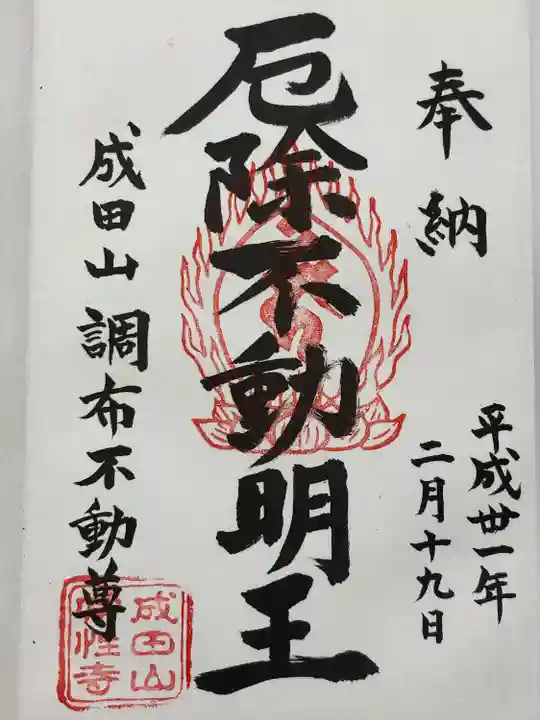 奉納
平成丗一年
二月十九日
厄除不動明王
成田山調布不動尊
成田山
性寺